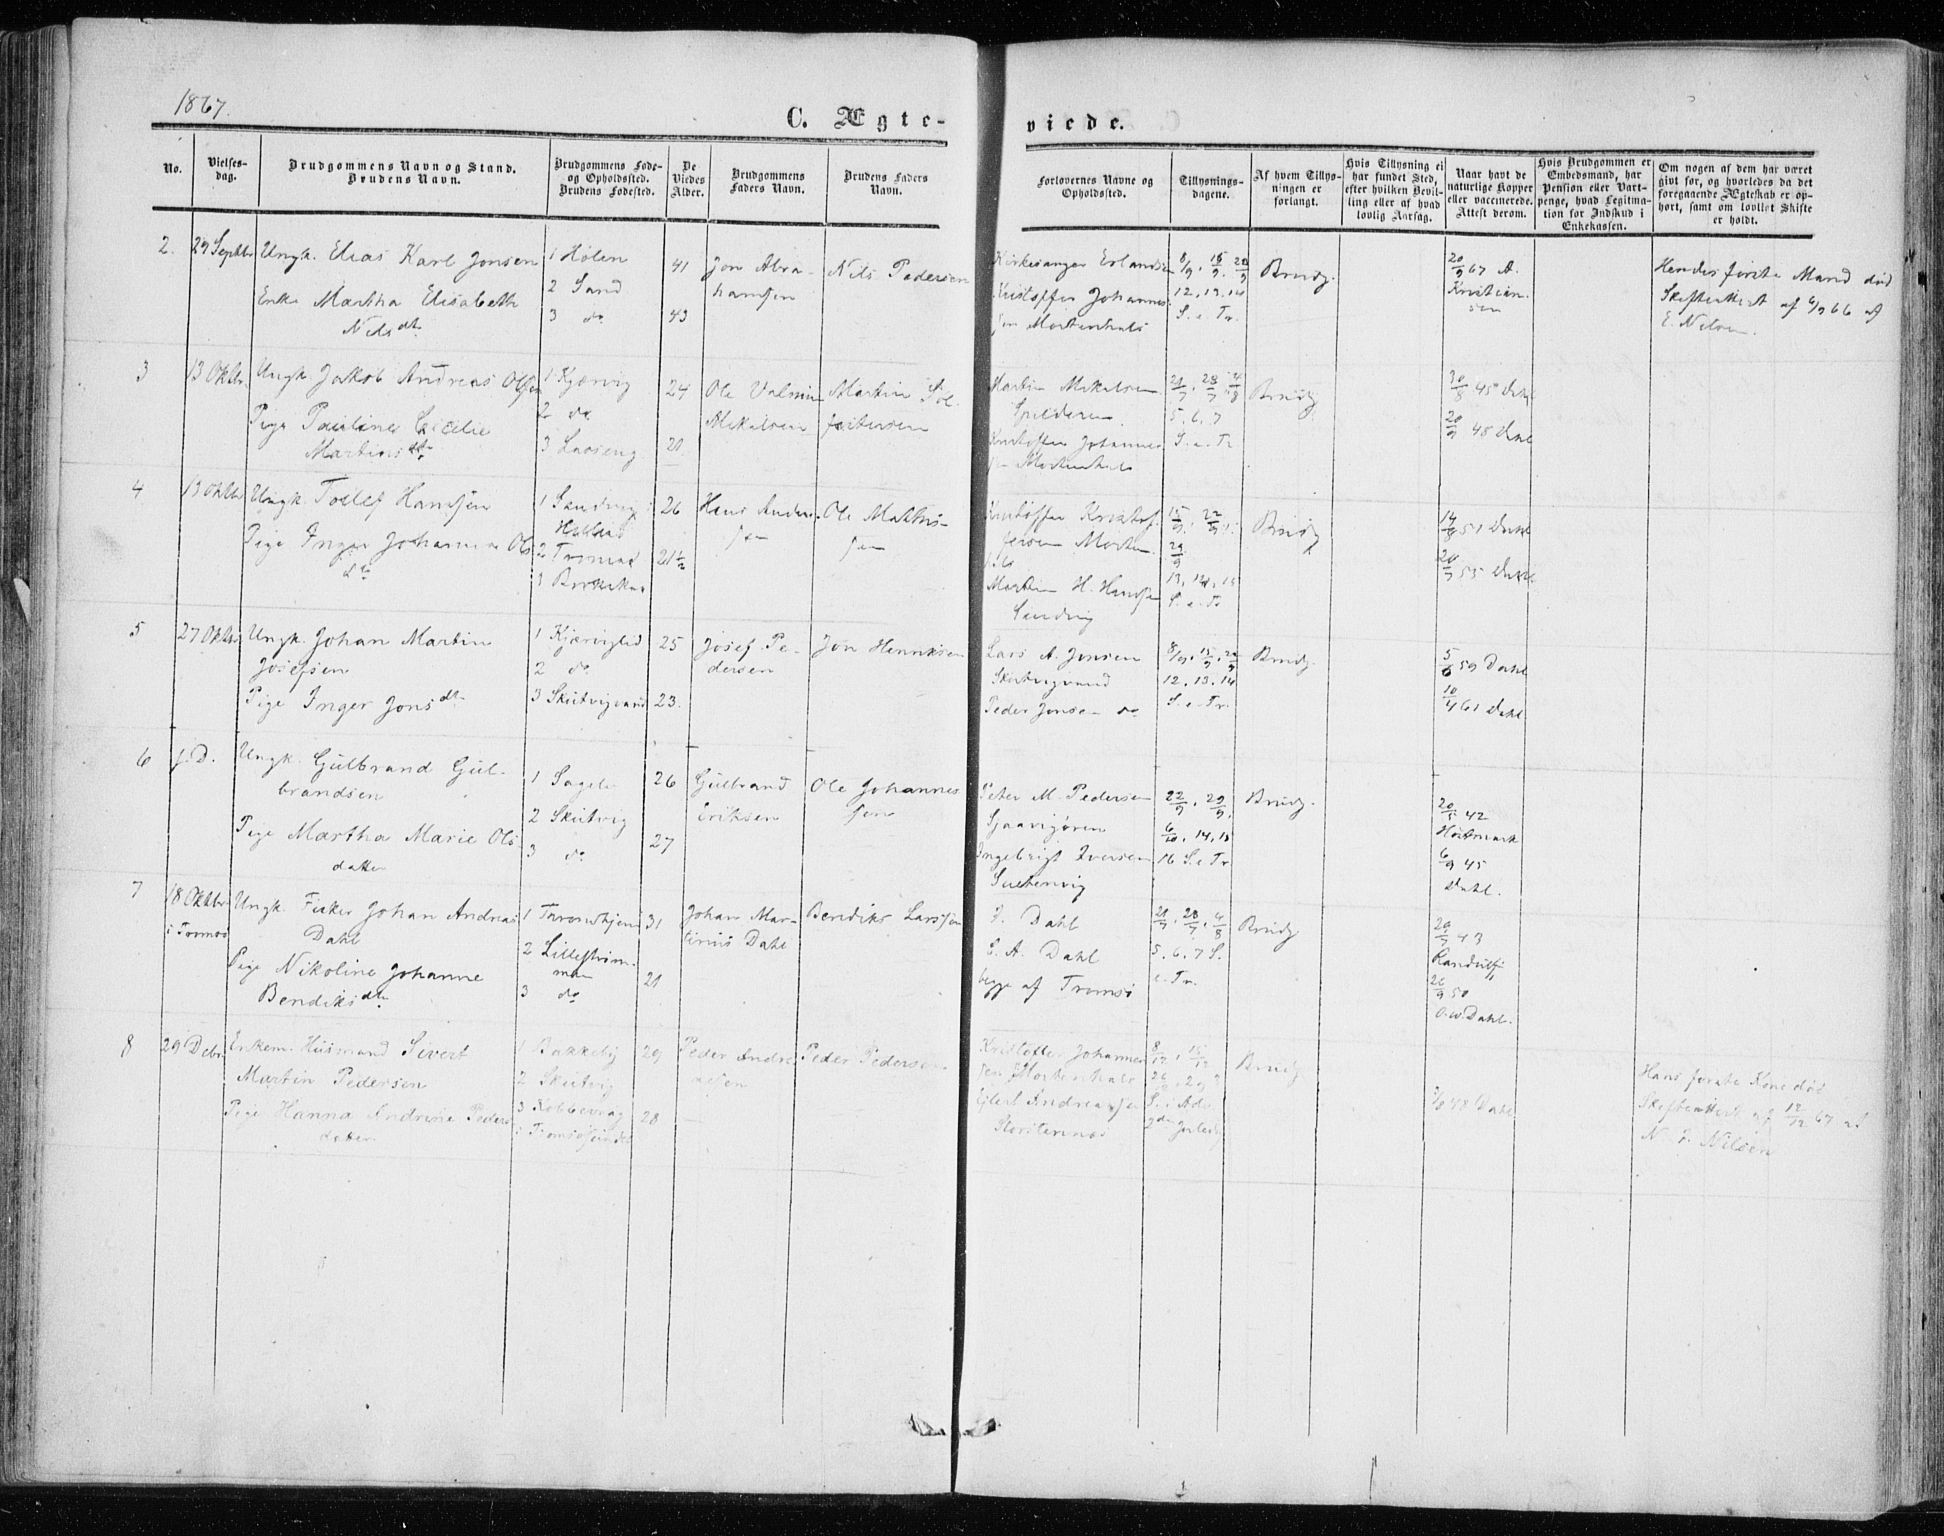 1867.
C. Ægte-
viede.
No.
Vielses-
dag.
Brudgommens Navn og Stand.
Brudens Navn.
Brudgommens Føde-
og Opholdssted.
Brudens Fødested.
De
Viedes
Alder.
Brudgommens
Faders Navn.
Brudens Faders
Navn.
Forlovernes Navne og
Opholdssted.
Tillysnings-
dagene.
Af hvem Tillys-
ningen er
forlangt.
Hvis Tillysning ei
har fundet Sted,
efter hvilken Bevil-
ling eller af hvad
lovlig Aarsag.
Naar havt de
naturlige Kopper
eller vaccinerede.
Attest derom.
Hvis Brudgommen er
Embedsmand, har
Pension eller Vart-
penge, hvad Legitima-
tion for Indskud i
Enkekassen.
Om nogen af dem har været
givt før, og hvorledes da det
foregaaende Ægteskab er op-
hørt, samt om lovligt Skifte
er holdt.
2.
29 Septbr
Ungk. Elias Karl Jonsen
Enke Martha Elisabeth
Nilsdtr
1 Holen
2 Sand
3 do
41
43
Jon Abra-
hamsen
Nils Pedersen
Kirkesanger Erlandsen
Kristoffer Johannes-
sen Mortenhals
8/9. 15/9. 20/9
12. 13. 14
S. e. Tr.
Brudg.
20/9 67 A.
Kristian-
sen
Hendes første Mand død
Skifteattest af 6/9 66 af
E. Nilsen.
3
13 Oktbr
Ungk. Jakob Andreas Olsen
Pige Pauline Cecelie
Martinsdtr
1 Kjærvig
2 do
3 Laaseng
24
21
Ole Valmin
Mikalsen
Martin Sol-
feitersen
Martin Mikalsen
Spilderen
Kristoffer Johannes
sen Mortenhals
21/7. 28/7. 4/8
5. 6. 7
S. e. Tr
Brudg
30/8 45 Dahl
20/9 48 Dahl
4
13 Oktbr
Ungk. Tollef Hansen
Pige Inger Johanna Ols
dtr
1 Sandvig
2 Tromsø
26
21½
Hans Ander-
sen
Ole Mathis-
sen
Kristoffer Kristof-
fersen Morten
hals
Martin H. Hansen
Sandvig
15/9. 22/9.
29/9
13. 14. 15
S. e. Tr
Brudg
14/8 51 Dahl
20/7 55 Dahl
5
27 Oktbr
Ungk. Johan Martin
Josefsen
Pige Inger Jonsdtr
1 Kjærviglid
2 do
3 Skutvigvand
25
23.
Josef Pe-
dersen
Jon Henriksen
Lars A. Jonsen
Skutvigvand
Peder Jonsen do
8/9. 15/9. 20/9
12. 13. 14
S. e. Tr.
Brudg.
5/6 59 Dahl
10/4 61 Dahl
6
s. D.
Ungk. Gulbrand Gul-
brandsen
Pige Martha Marie Ols
datter
2 Skutvig
3 do
26
27
Gulbrand
Eriksen
Ole Johannes
sen
Peter M. Pedersen
Ingebrigt Iversen
22/9. 29/9.
6/10. 14. 15
16 S. e. Tr
Brudg.
20/5 42
6/9 45
Dahl.
7
18 Oktbr
i Tromsø
Ungk. Fisker Johan Andreas
Dahl
Pige Nikoline Johanne
Bendiksdtr
1 Throndhjem
2 Lillestrøm-
men
3 do
31
21
Johan Mar-
tinus Dahl
Bendiks Larssen
J. Dahl
E. A. Dahl
begge af Tromsø
21/7. 28/7. 4/8
5. 6. 7 S.
e. Tr.
Brudg
20/7 43
Randulf
26/9 50
O. W. Dahl.
8
29 Debr
Enkem. Husmand Sivert
Martin Pedersen
Pige Hanna Andrine Peders
datter
1 Bakkeby
2 Skutvig
3 Kobbevaag
i Tromsøsundet
29
28
Peder Andre
assen
Peder Pedersen
Kristoffer Johannes
sen Mortenhals
Eilert Andreassen
Storstennæs
8/12. 15/12
S. i Adv
Brudg
48 Dahl
Hans første Kone død
Skifteattest af 12/12 67 af
N. J. Nilsen